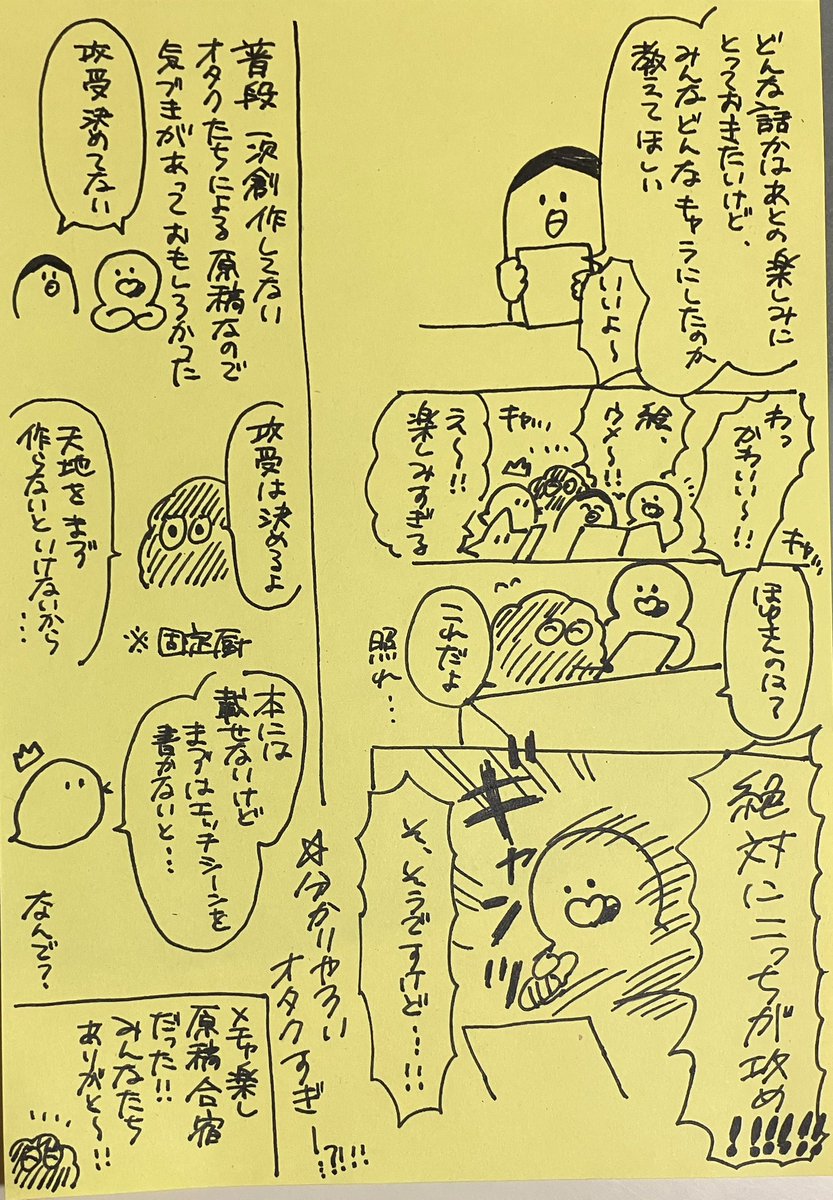 どんな話かはあとの楽しみに
とっておきたいけど、
みんなどんなキャラにしたのか
教えてほしい
いいよ〜
わっ
かわいい〜!!
キャッ…
絵、
ウメ〜!!
キャッ…
え〜!!
楽しみすぎる
ほゆさんのは?
これだよ
照れ…
絶対にこっちが攻め
!!!!!!
ギャンッ
そ、そうですけど…!!
☆分かりやろい
オタクすぎー!?!!!
普段一次創作してない
オタクたちによる原稿なので
気づきがあっておもしろかった
攻受決めてない
攻受は決めるよ
※固定厨
天地をまず
作らないといけないから…
本には
載せないけど
まずはエッチシーンを
書かないと…
なんで?
メチャ楽し
原稿合宿
だった!!
みんなたち
ありがと〜!!